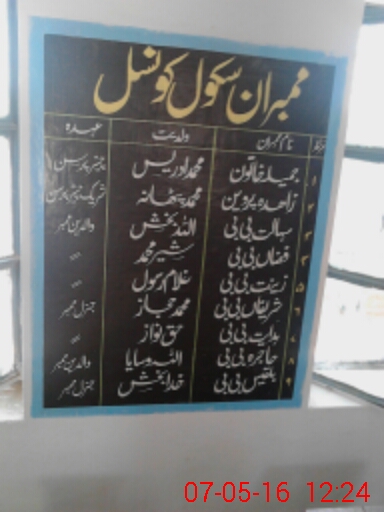 ممبران سکول کونسل
نمبر نام ممبران ولدیت عہدہ
۱ جمیلہ خاتون محمد ادریس چیئر پرسن
۲ زاھدہ پروین محمد پٹھانہ شریک چیئر پرسن
۳ سہالت بی بی اللہ بخش والدین ممبر
۴ فضاں بی بی شیر محمد 〃
۵ زینت بی بی غلام رسول 〃
۶ شریفاں بی بی محمد حجاز جنرل ممبر
۷ ہدایت بی بی حق نواز 〃
۸ حاجرہ بی بی اللہ وسایا والدین ممبر
۹ بلقیس بی بی خدا بخش جنرل ممبر
07-05-16 12:24